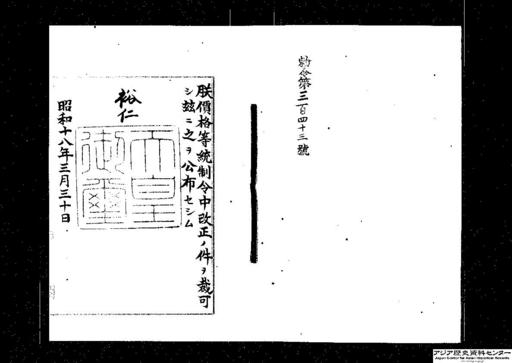 勅令第三百四十三號
朕價格等統制令中改正ノ件ヲ裁可
シ茲ニ之ヲ公布セシム
裕仁
天皇
御璽
昭和十八年三月三十日
アジア歴史資料センター
Japan Center for Asian Historical Records